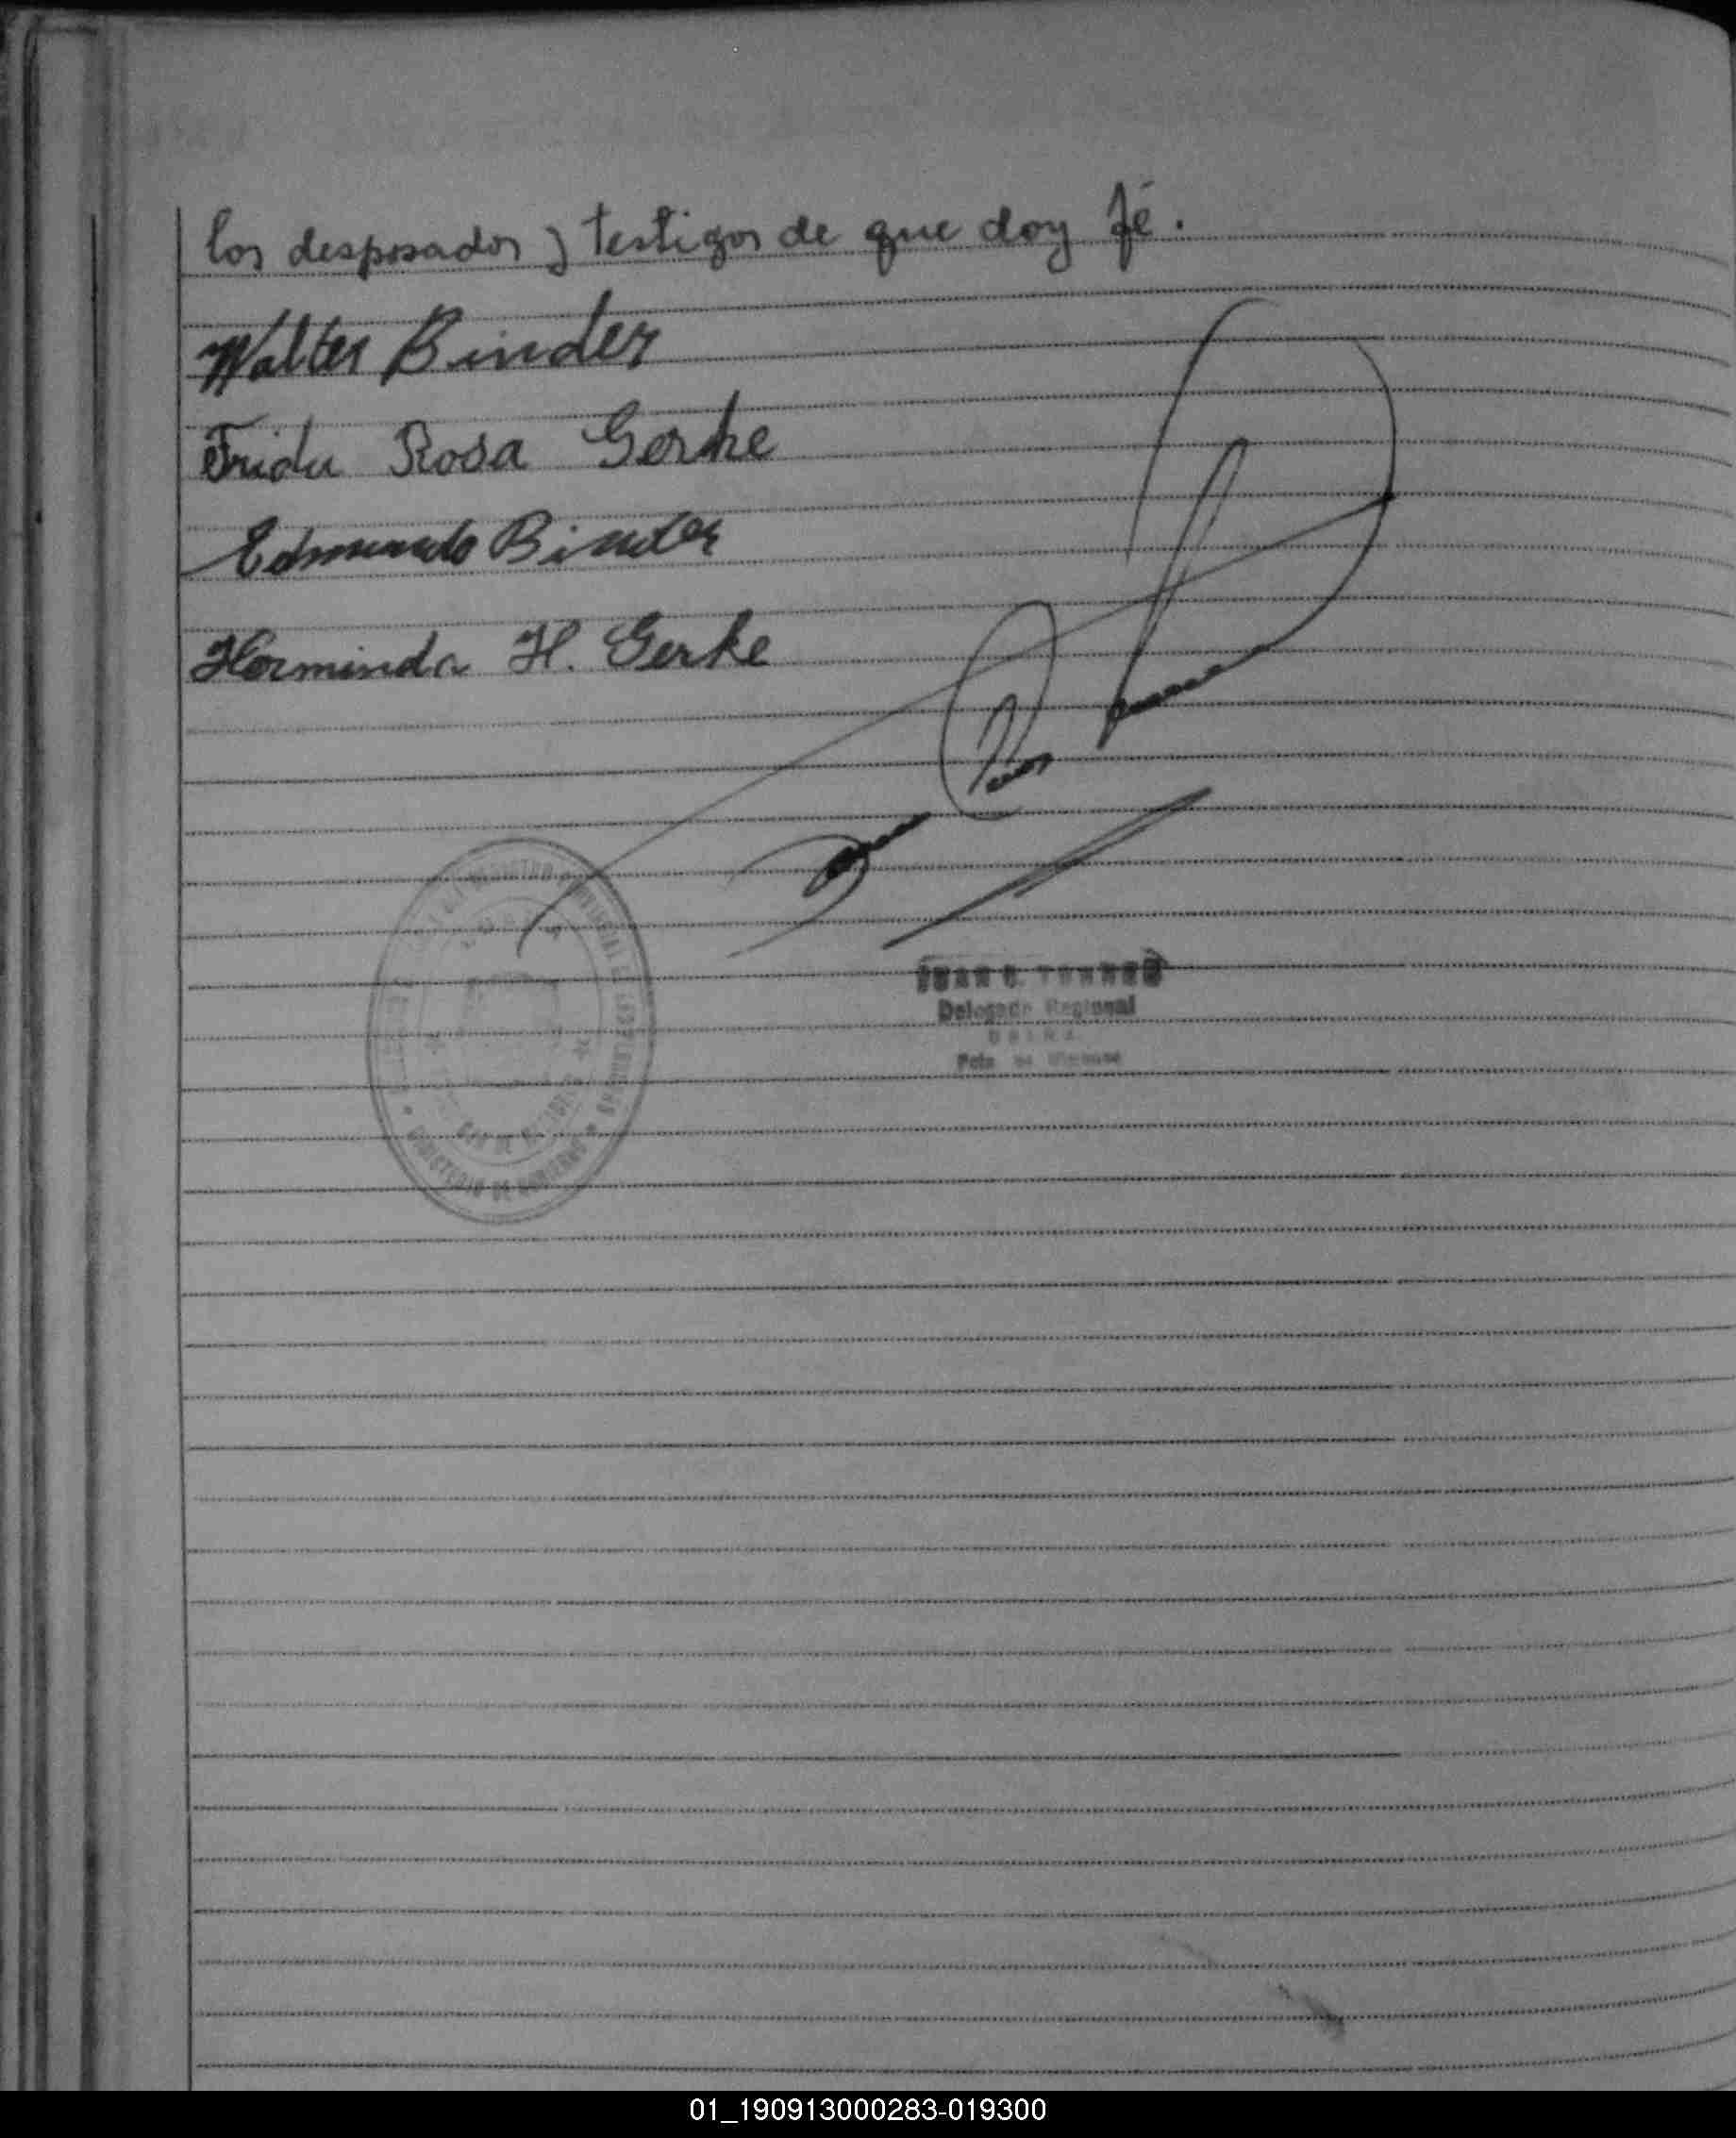 los desposados y testigos de que doy fé.
Walter Binder
Frida Rosa Gerke
Edmundo Binder
Herminda H. Gerke
Delegado Regional
MINISTERIO DE GOBIERNO
01_190913000283-019300